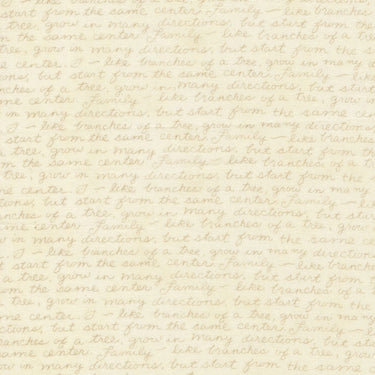 like branches of a tree, grow in many
from the same center. Family – like branches
tree, grow in many directions, but start from
same center. Family – like branches of a
tree, grow in many directions, but start from the
center. – like branches of a tree, grow in many
ons, but start from the same center. Family – like
branches of a tree, grow in many directions, but start
same center. Family – like branches of a tree, grow
in many directions, but start from the same
– like branches of a tree, grow in many directions
start from the same center. Family – like branches
in the same center. Family – like branches of a
tree, grow in many directions, but start from the
center. – like branches of a tree, grow in many
tions, but start from the same center. Family – like
branches of a tree, grow in many directions, but start
same center. Family – like branches of a tree, grow
in many directions, but start from the same cen
– like branches of a tree, grow in many directions
start from the same center. Family – like branches
a tree, grow in many directions, but start from
the same center. Family – like branches of a
tree, grow in many directions, but start from the
same center. – like branches of a tree, grow in many
ctions, but start from the same center. Family – like
branches of a tree, grow in many directions, but start
same center. Family – like branches of a tree, grow